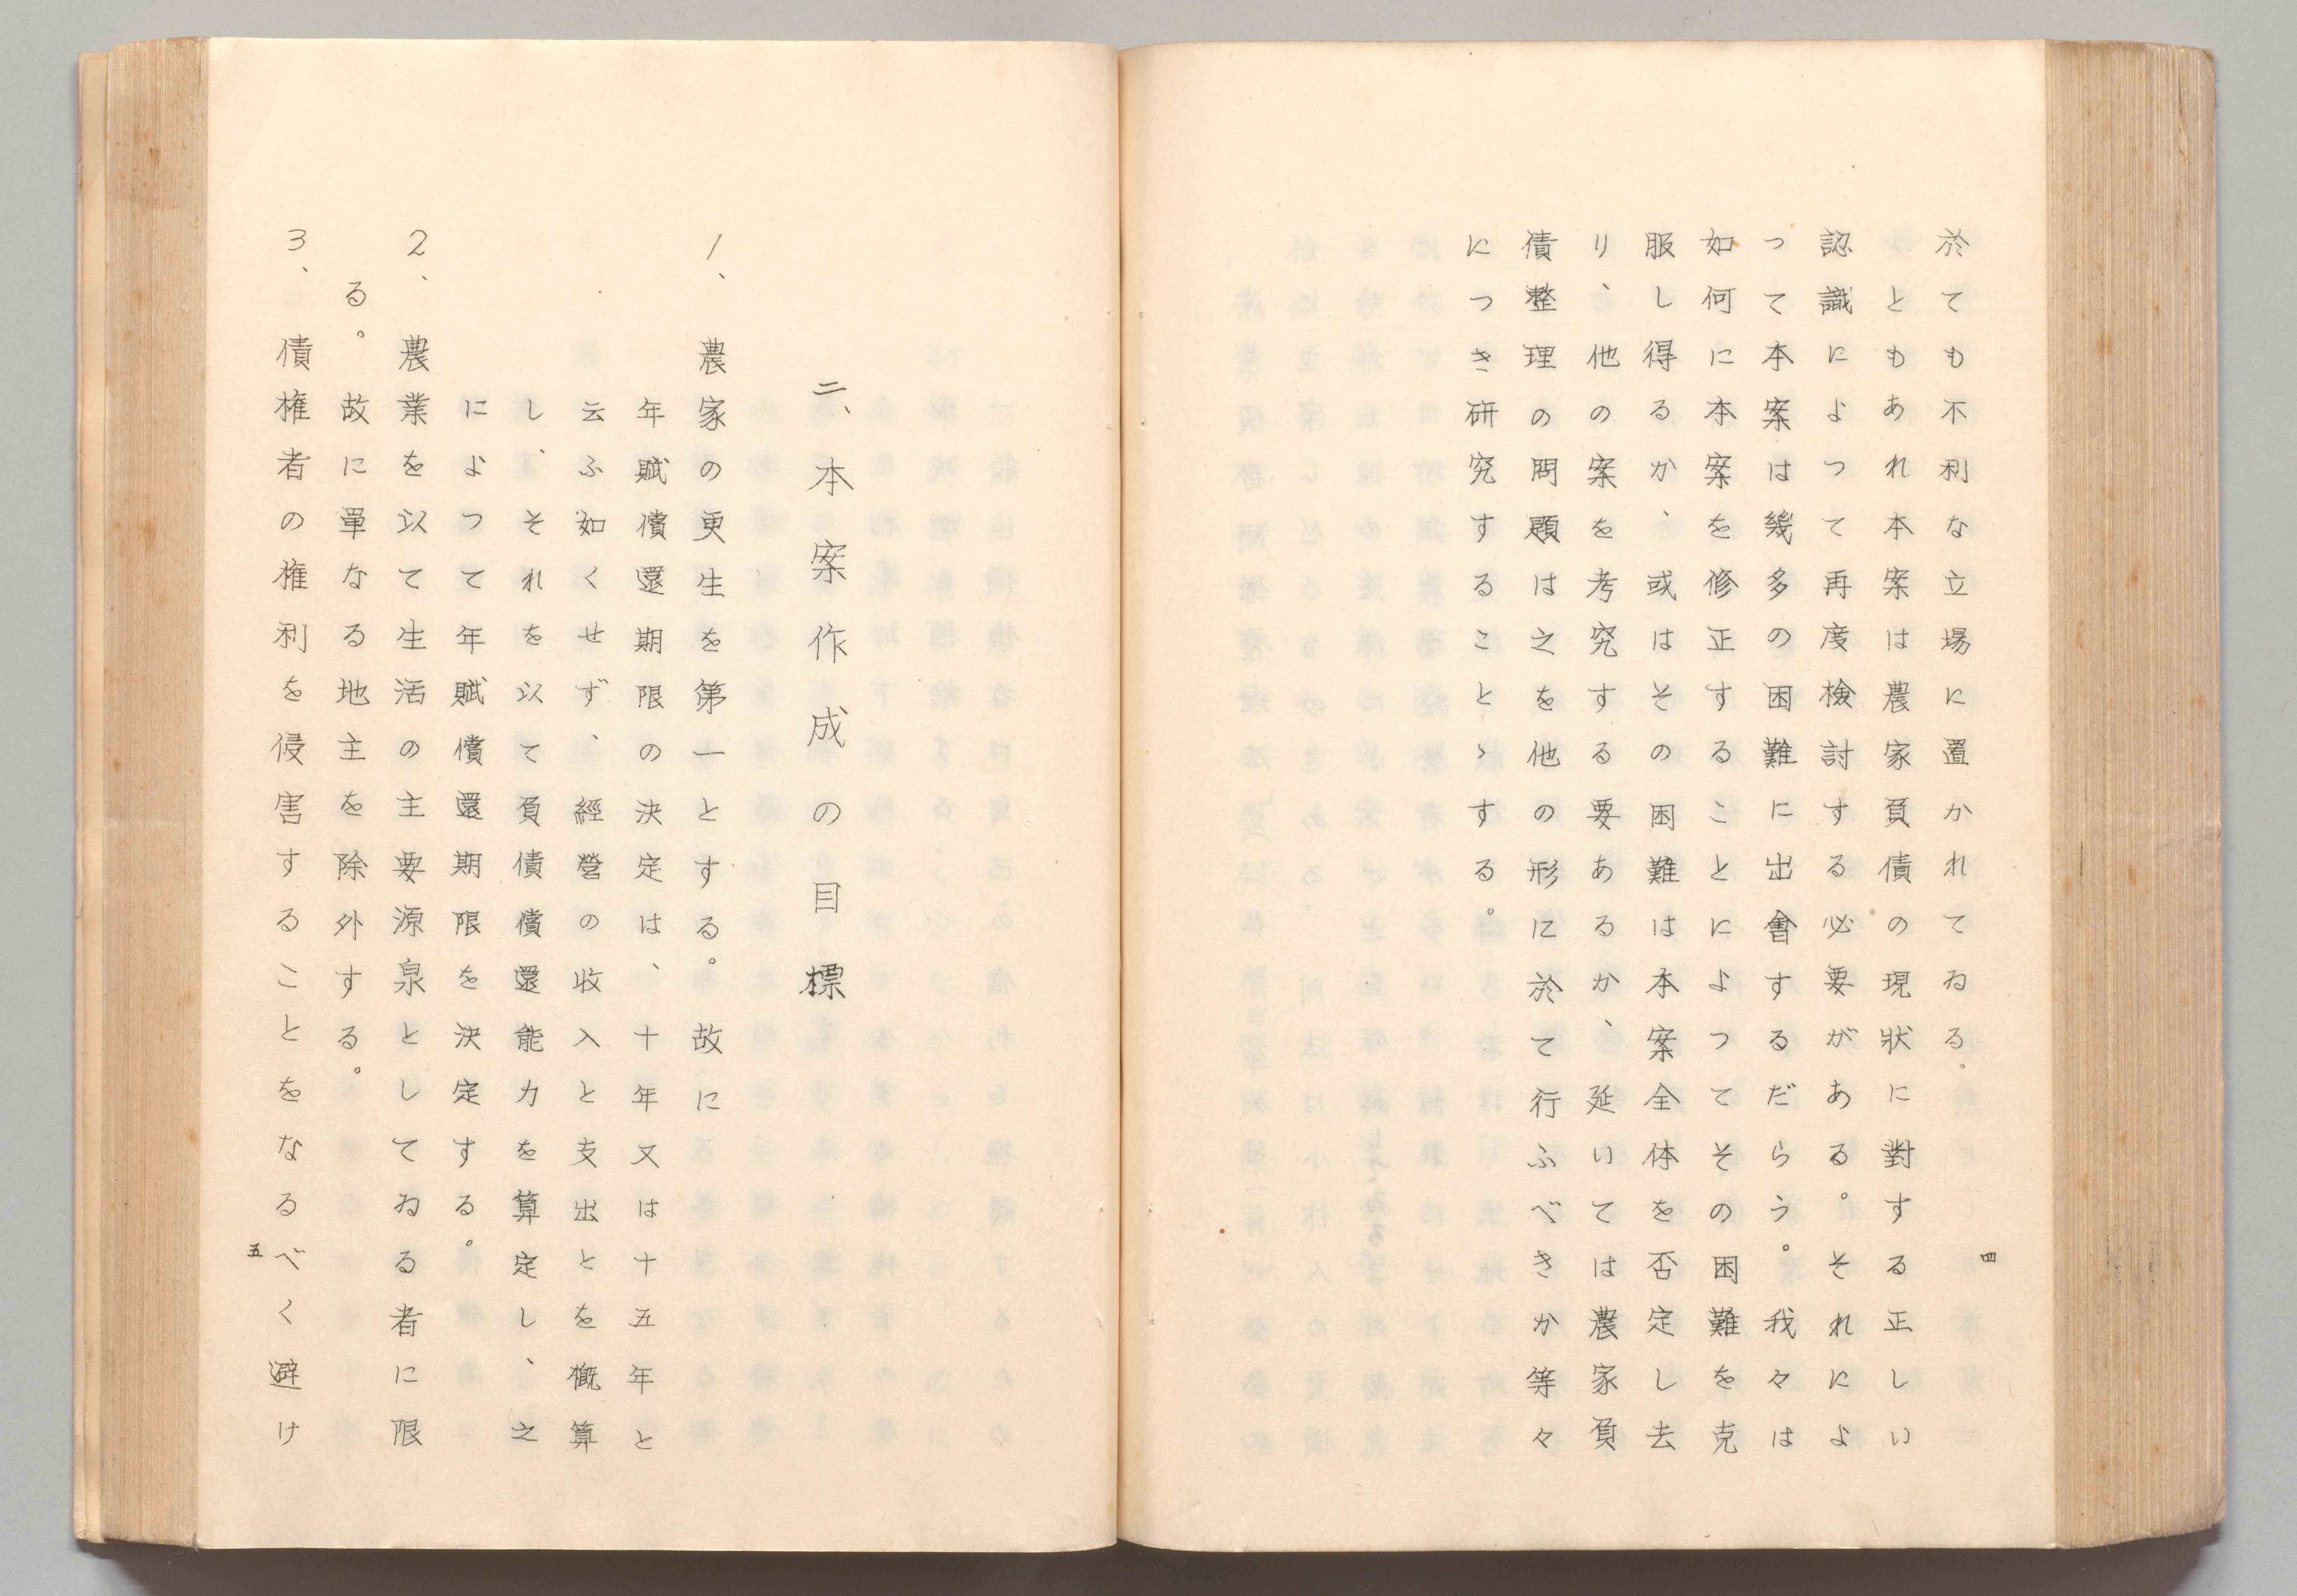 於ても不利な立場に置かれてゐる。
ともあれ本案は農家負債の現狀に對する正しい
認識によつて再度檢討する必要がある。それによ
つて本案は幾多の困難に出會するだらう。我々は
如何に本案を修正することによつてその困難を克
服し得るか、或はその困難は本案全体を否定し去
り、他の案を考究する要あるか、延いては農家負
債整理の問題は之を他の形に於て行ふべきか等々
につき研究することゝする。
四
二、本案作成の目標
1、農家の更生を第一とする。故に
年賦償還期限の決定は、十年又は十五年と
云ふ如くせず、經營の收入と支出とを概算
し、それを以て負債償還能力を算定し、之
によつて年賦償還期限を決定する。
2、農業を以て生活の主要源泉としてゐる者に限
る。故に單なる地主を除外する。
3、債権者の権利を侵害することをなるべく避け
五